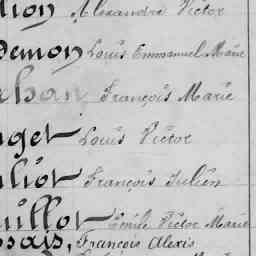 lion Alexandre Victor
Demon Louis Emmanuel Marie
han François Marie
get Louis Victor
liot François Julien
uillot Emile Victor Marie
ssais, François Alexis